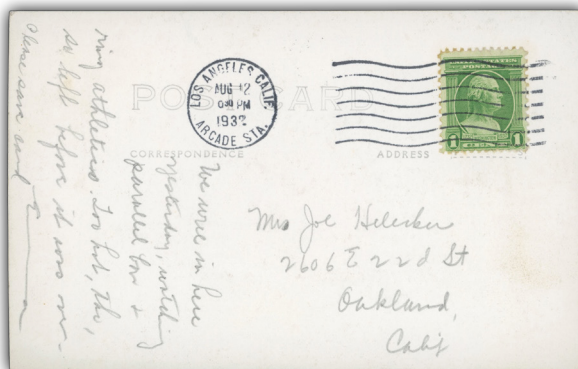 POST CARD
LOS ANGELES, CALIF.
AUG 12
630 PM
1932
ARCADE STA.
UNITED STATES
POSTAGE
1 1
CENTS
CORRESPONDENCE
ADDRESS
We were in here
yesterday, watching
parallel bars &
ring athletics. Too hot, tho,
so left before it was over.
Please save card
Mrs Joe
2606 E 22d St
Oakland,
Calif